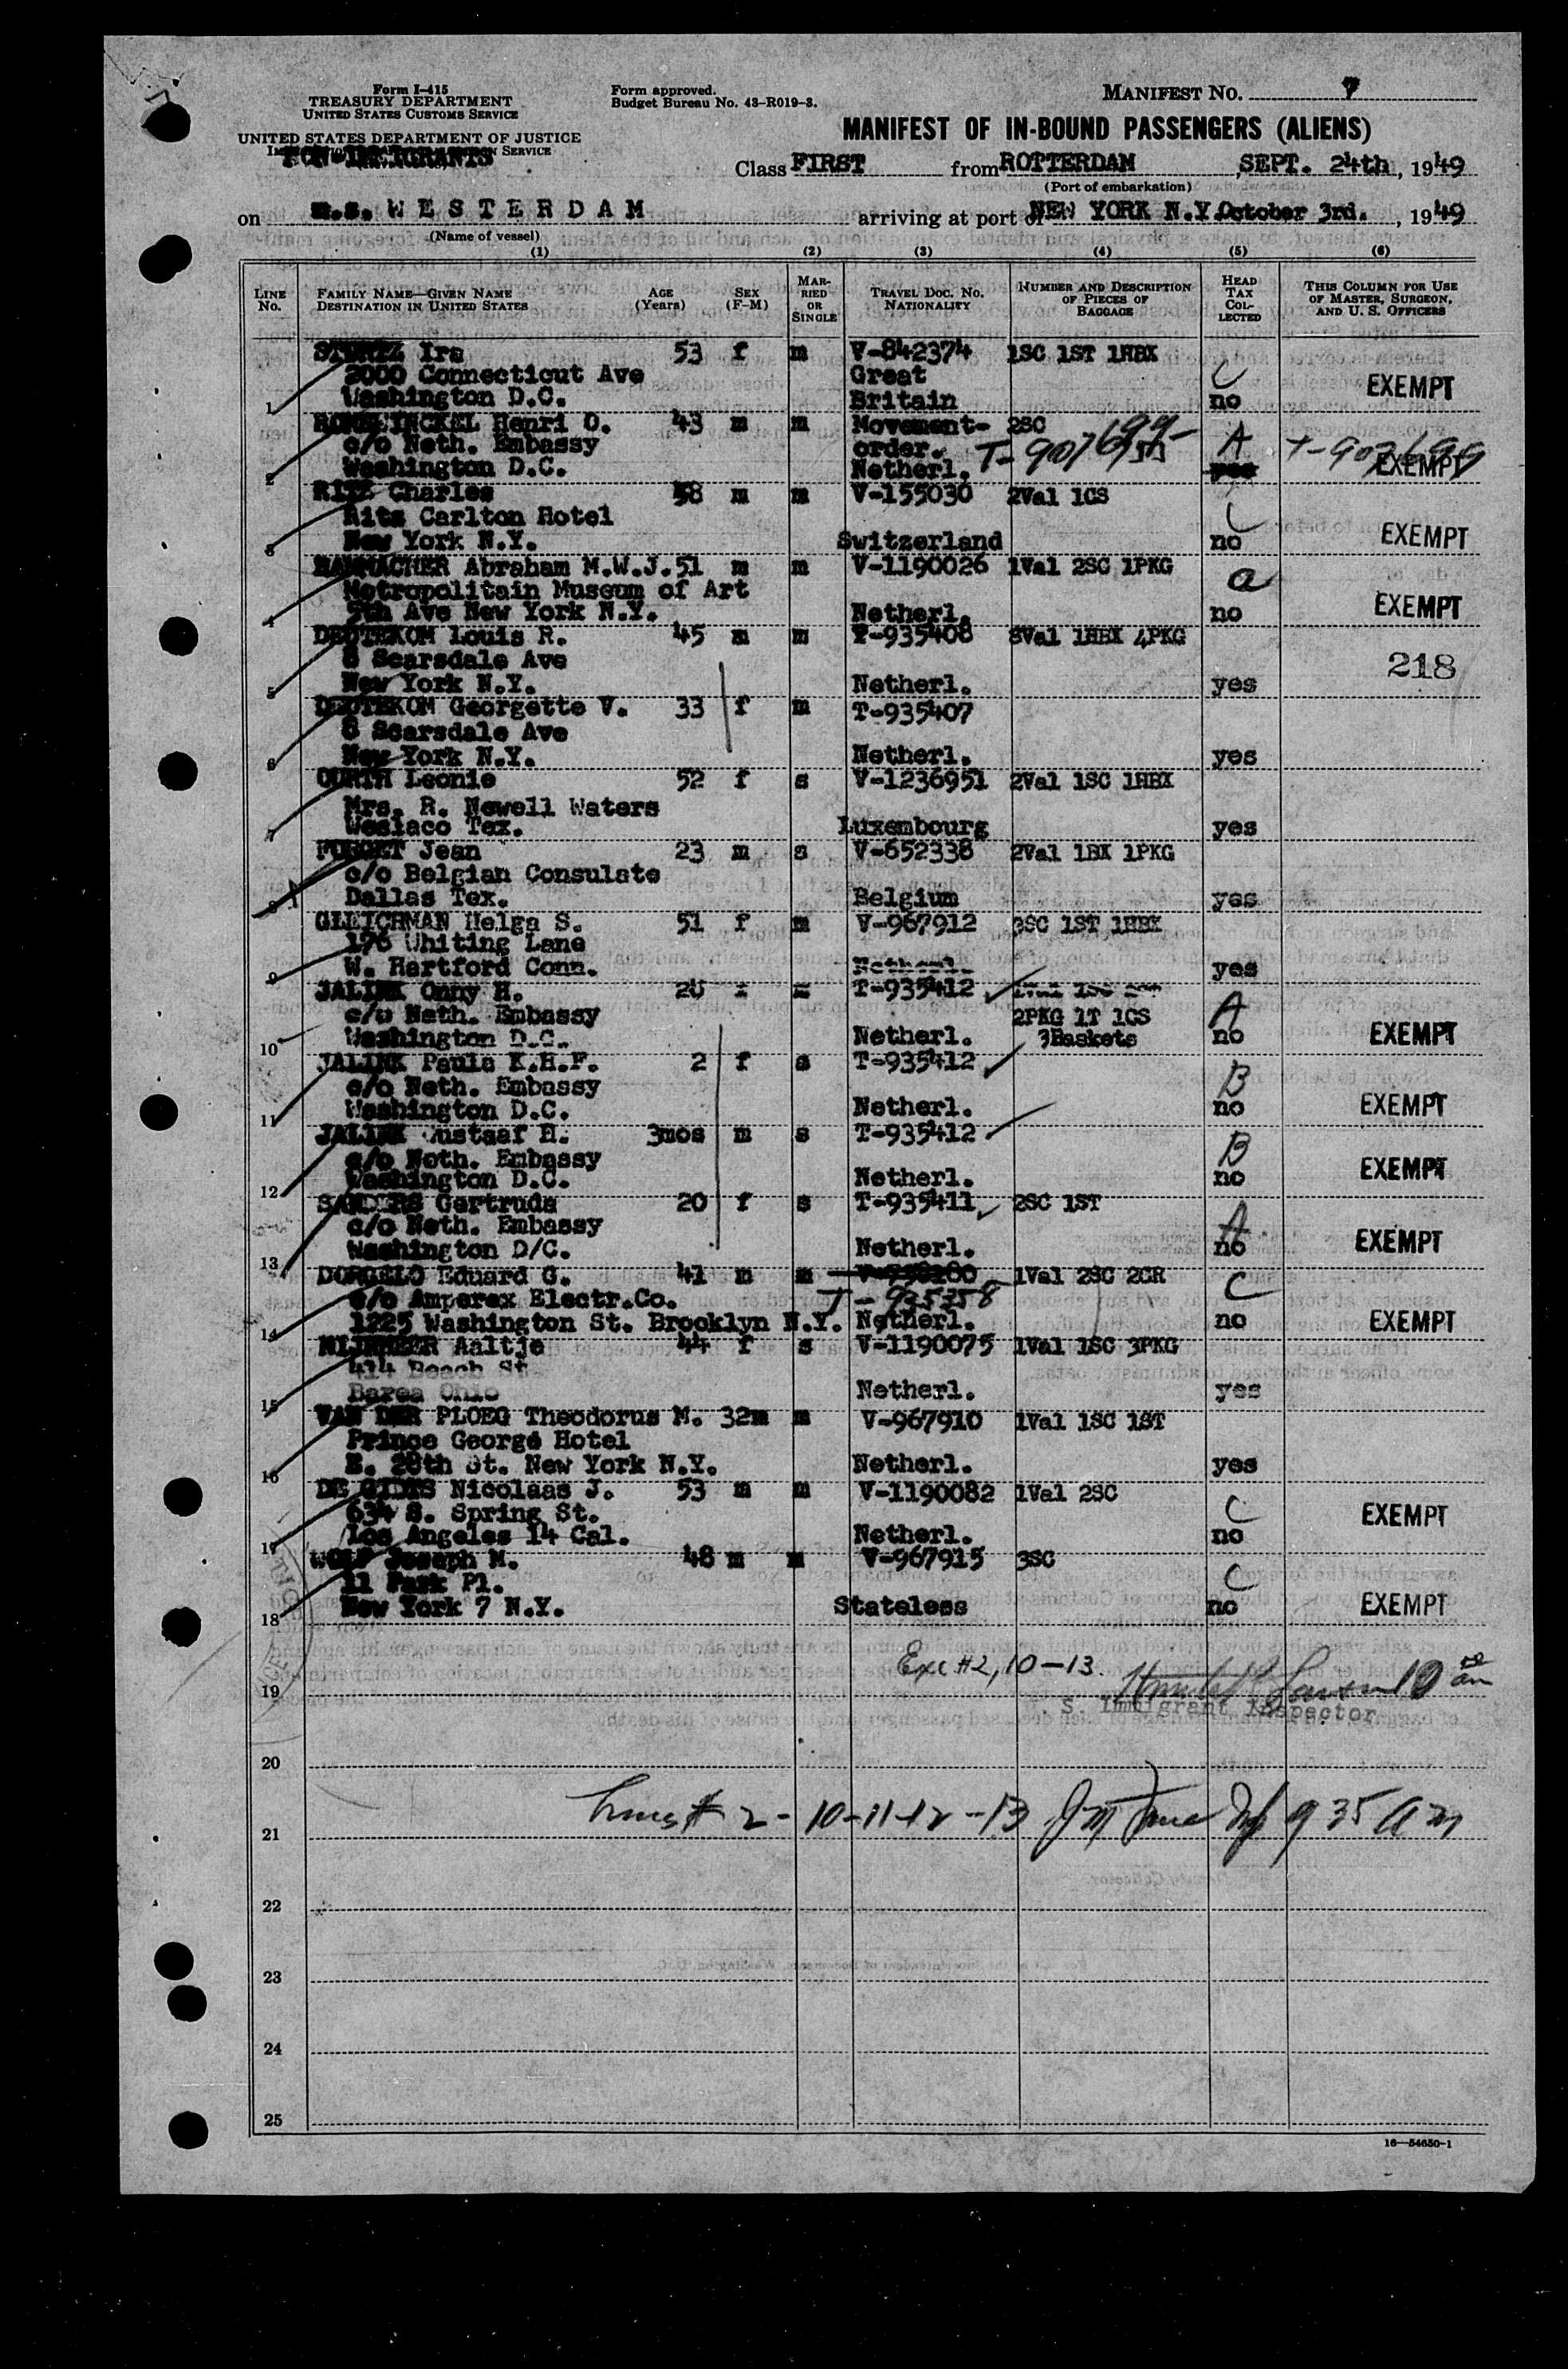 Form I-415
TREASURY DEPARTMENT
UNITED STATES CUSTOMS SERVICE
UNITED STATES DEPARTMENT OF JUSTICE
SERVICE
Form approved.
Budget Bureau No. 43-R019-3.
MANIFEST NO. 7
MANIFEST OF IN-BOUND PASSENGERS (ALIENS)
Class FIRST from ROTTERDAM, SEPT. 24th, 1949
(Port of embarkation)
on m.s. WESTERDAM arriving at port of NEW YORK N.Y. October 3rd., 1949
(Name of vessel)
(1) (2) (3) (4) (5) (6)
LINE No.
FAMILY NAME—GIVEN NAME DESTINATION IN UNITED STATES
AGE (Years)
SEX (F-M)
MARRIED OR SINGLE
TRAVEL DOC. NO. NATIONALITY
NUMBER AND DESCRIPTION OF PIECES OF BAGGAGE
HEAD TAX COLLECTED
THIS COLUMN FOR USE OF MASTER, SURGEON, AND U. S. OFFICERS
Ira 53 f m V-842374 1SC 1ST 1HBX
2000 Connecticut Ave Great C
1 Washington D.C. Britain no EXEMPT
Henri O. 43 m m Movement- 2SC
c/o Neth. Embassy order. A
2 Washington D.C. Netherl. EXEMPT
RITZ Charles 58 m m V-155030 2Val 1CS
Ritz Carlton Hotel C
3 New York N.Y. Switzerland no EXEMPT
HAMMACHER Abraham M.W.J. 51 m m V-1190026 1Val 2SC 1PKG
Metropolitain Museum of Art a
4 5th Ave New York N.Y. Netherl. no EXEMPT
DEUTEKOM Louis R. 45 m m T-935408 8Val 1HBX 4PKG
8 Scarsdale Ave 218
5 New York N.Y. Netherl. yes
DEUTEKOM Georgette V. 33 f m T-935407
8 Scarsdale Ave
6 New York N.Y. Netherl. yes
Leonie 52 f s V-1236951 2Val 1SC 1HBX
Mrs. R. Newell Waters
7 Weslaco Tex. Luxembourg yes
Jean 23 m s V-652338 2Val 1BX 1PKG
c/o Belgian Consulate
8 Dallas Tex. Belgium yes
GLEICHMAN Helga S. 51 f m V-967912 3SC 1ST 1HBX
176 Whiting Lane
9 W. Hartford Conn. Netherl. yes
JALINK Onny H. T-935412
c/o Neth. Embassy 2PKG 1T 1CS A
10 Washington D.C. Netherl. 3Baskets no EXEMPT
JALINK Paula K.H.F. 2 f s T-935412
c/o Neth. Embassy B
11 Washington D.C. Netherl. no EXEMPT
JALINK Gustaaf H. 3mos m s T-935412
c/o Neth. Embassy B
12 Washington D.C. Netherl. no EXEMPT
SANDERS Gertruda 20 f s T-935411 2SC 1ST
c/o Neth. Embassy A
13 Washington D/C. Netherl. no EXEMPT
DORGELO Eduard G. 41 m m 1Val 2SC 2CR
c/o Amperex Electr.Co. T-935358 C
14 1225 Washington St. Brooklyn N.Y. Netherl. no EXEMPT
Aaltje 44 f s V-1190075 1Val 1SC 3PKG
414 Beach St.
15 Berea Ohio Netherl. yes
VAN DER PLOEG Theodorus M. 32 m m V-967910 1Val 1SC 1ST
Prince George Hotel
16 E. 28th St. New York N.Y. Netherl. yes
Nicolaas J. 53 m m V-1190082 1Val 2SC
634 S. Spring St. C
17 Los Angeles 14 Cal. Netherl. no EXEMPT
WOLF Joseph M. 48 m m V-967915 3SC
11 Park Pl. C
18 New York 7 N.Y. Stateless no EXEMPT
Exc #2, 10-13.
19
S. Immigrant Inspector
20
# 2 - 10-11-12-13 9 35 AM
21
22
23
24
25
16—54650-1